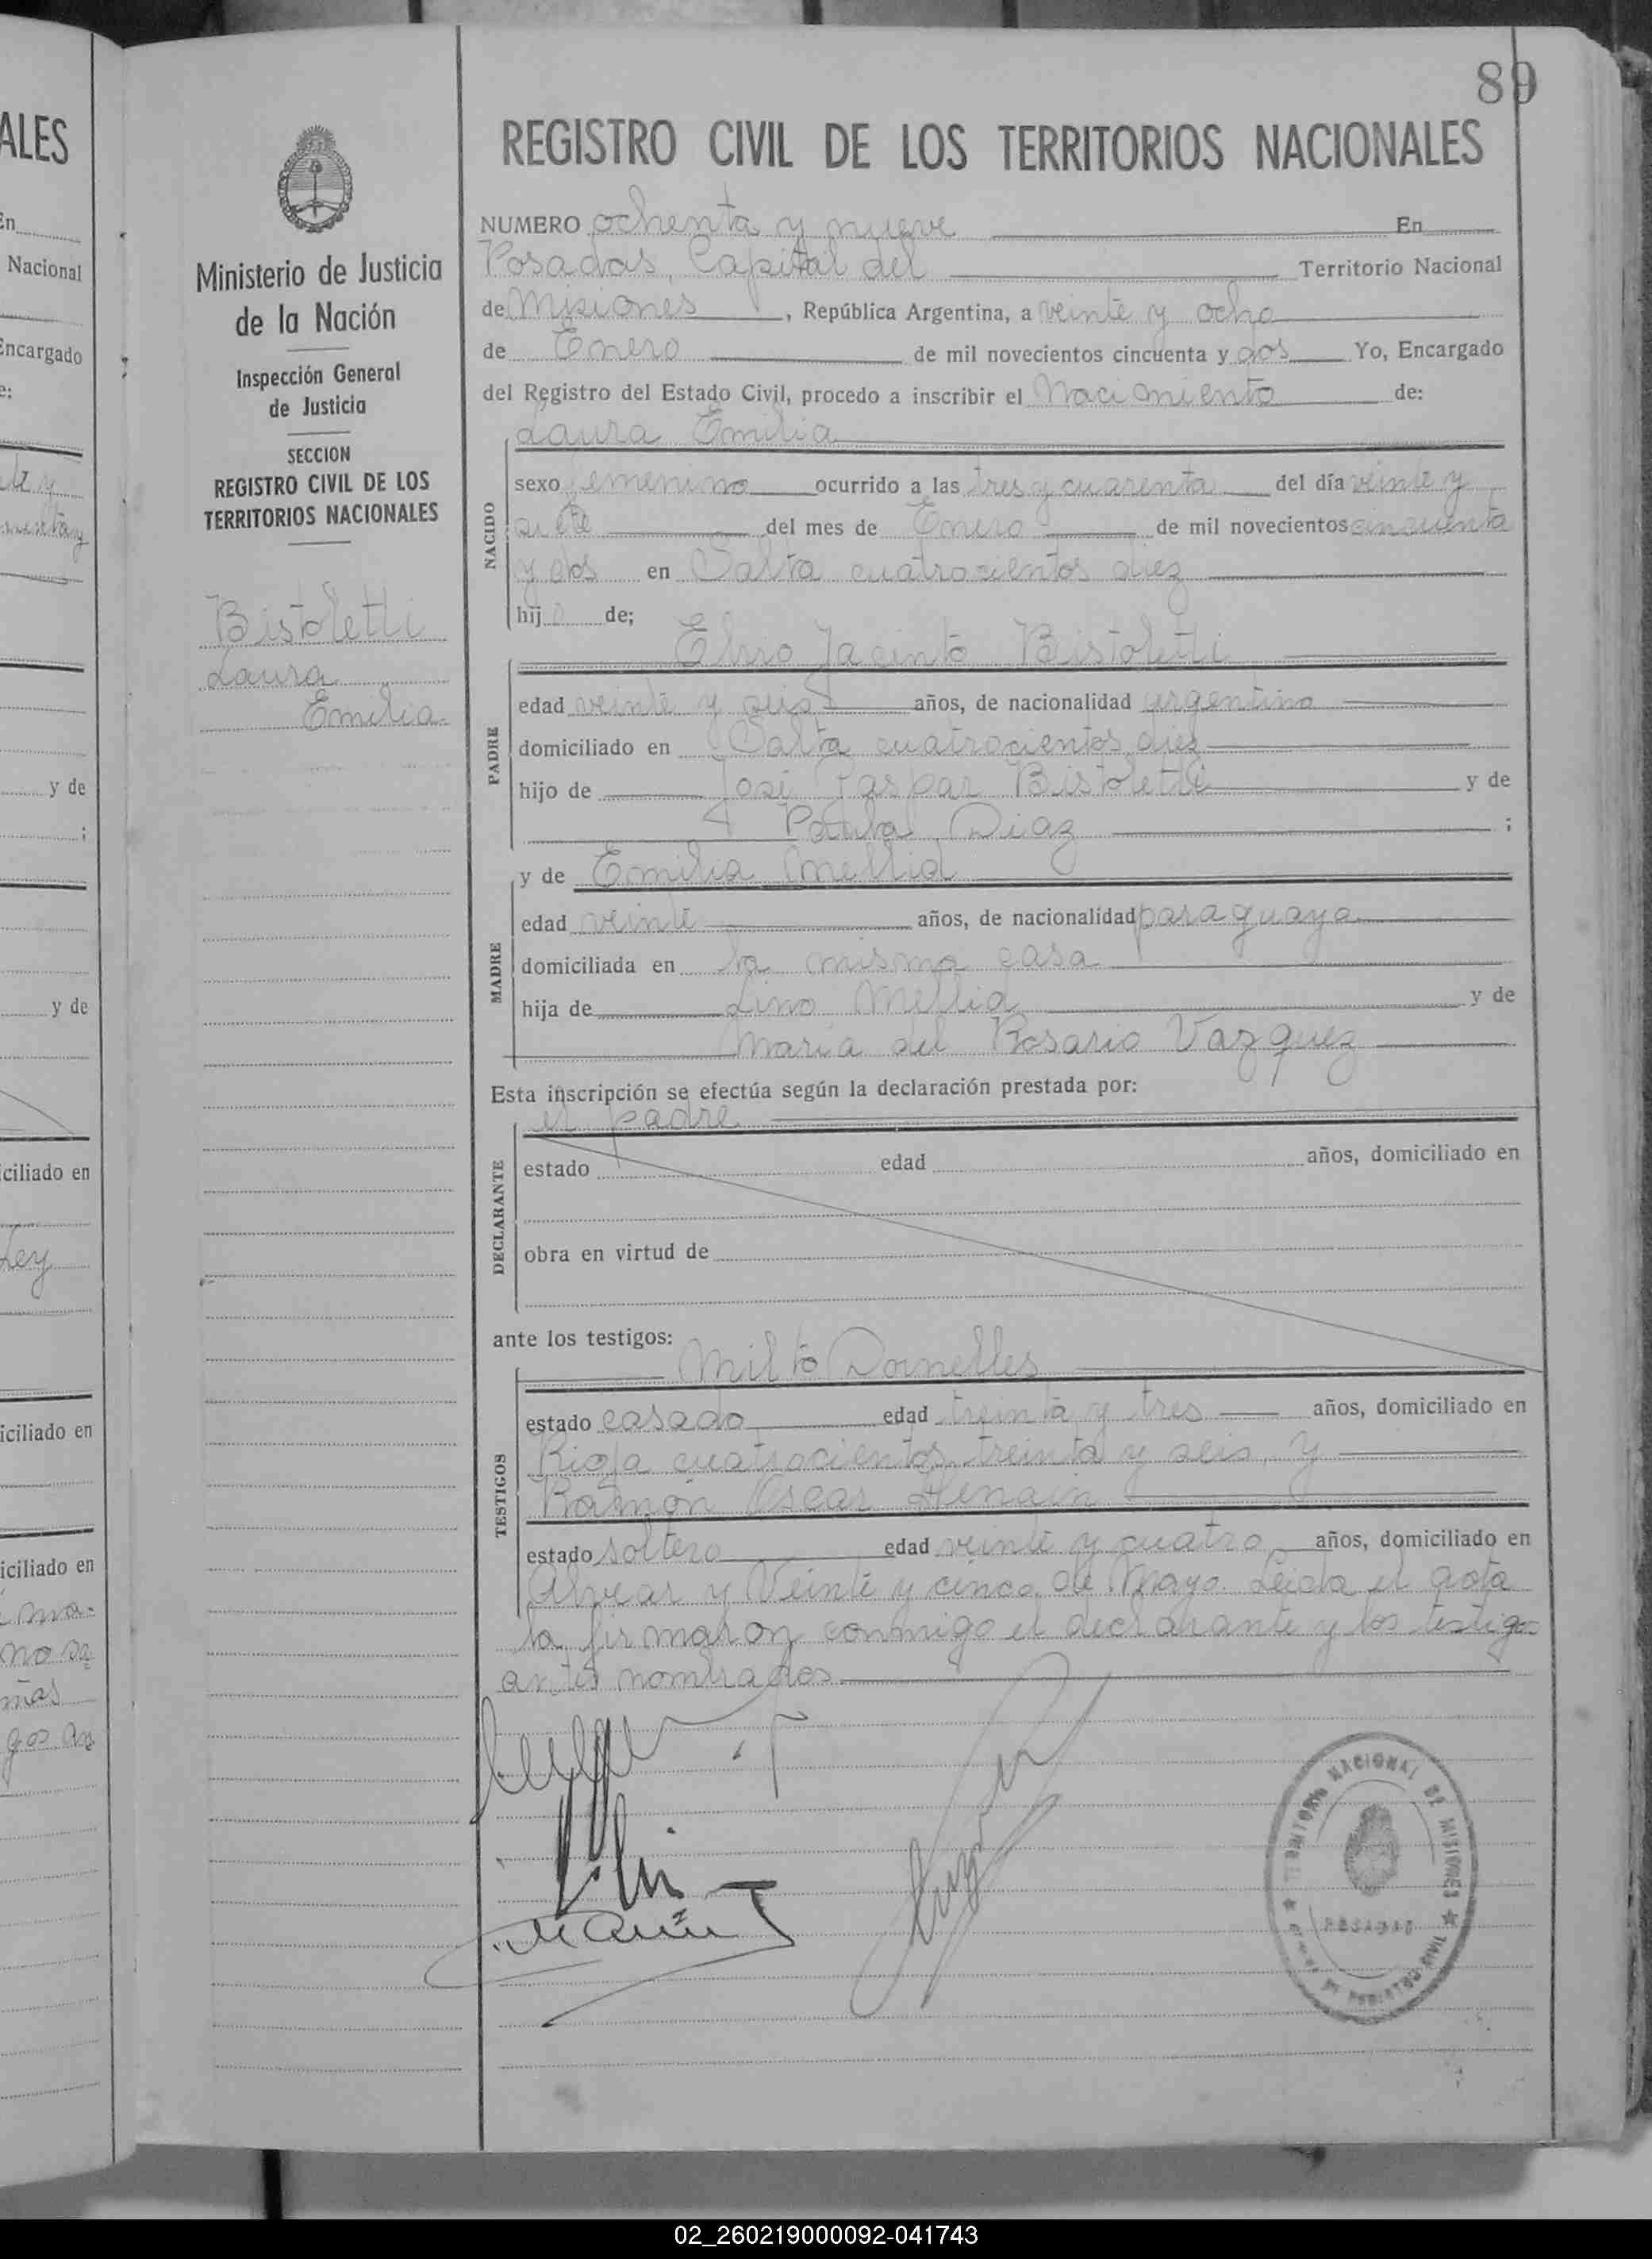 89
REGISTRO CIVIL DE LOS TERRITORIOS NACIONALES
Ministerio de Justicia
de la Nación
Inspección General
de Justicia
SECCION
REGISTRO CIVIL DE LOS
TERRITORIOS NACIONALES
Bistoletti
Laura
Emilia
NUMERO ochenta y nueve En
Posadas, Capital del Territorio Nacional
de Misiones, República Argentina, a veinte y ocho
de Enero de mil novecientos cincuenta y dos Yo, Encargado
del Registro del Estado Civil, procedo a inscribir el Nacimiento de:
Laura Emilia
NACIDO
sexo femenino ocurrido a las tres y cuarenta del día veinte y
siete del mes de Enero de mil novecientos cincuenta
y dos en Salta cuatrocientos diez
hij de;
PADRE
Jacinto Bistoletti
edad veinte y seis años, de nacionalidad argentino
domiciliado en Salta cuatrocientos diez
hijo de José Gaspar Bistoletti y de
Díaz ;
y de Emilia Mellid
MADRE
edad veinte años, de nacionalidad paraguaya
domiciliada en la misma casa
hija de Lino Mellid y de
María del Rosario Vazquez
Esta inscripción se efectúa según la declaración prestada por:
el padre
DECLARANTE
estado edad años, domiciliado en
obra en virtud de
ante los testigos:
Milto Dornelles
TESTIGOS
estado casado edad treinta y tres años, domiciliado en
Rioja cuatrocientos treinta y seis, y
Ramón Oscar
estado soltero edad veinte y cuatro años, domiciliado en
Alvear y Veinte y cinco de Mayo. Leida el acta
la firmaron conmigo el declarante y los testigos
antes nombrados.
TERRITORIO NACIONAL DE MISIONES
POSADAS
REGISTRO CIVIL
ALES
En
Nacional
Encargado
y de
y de
ciliado en
Ley
iciliado en
iciliado en
02_260219000092-041743